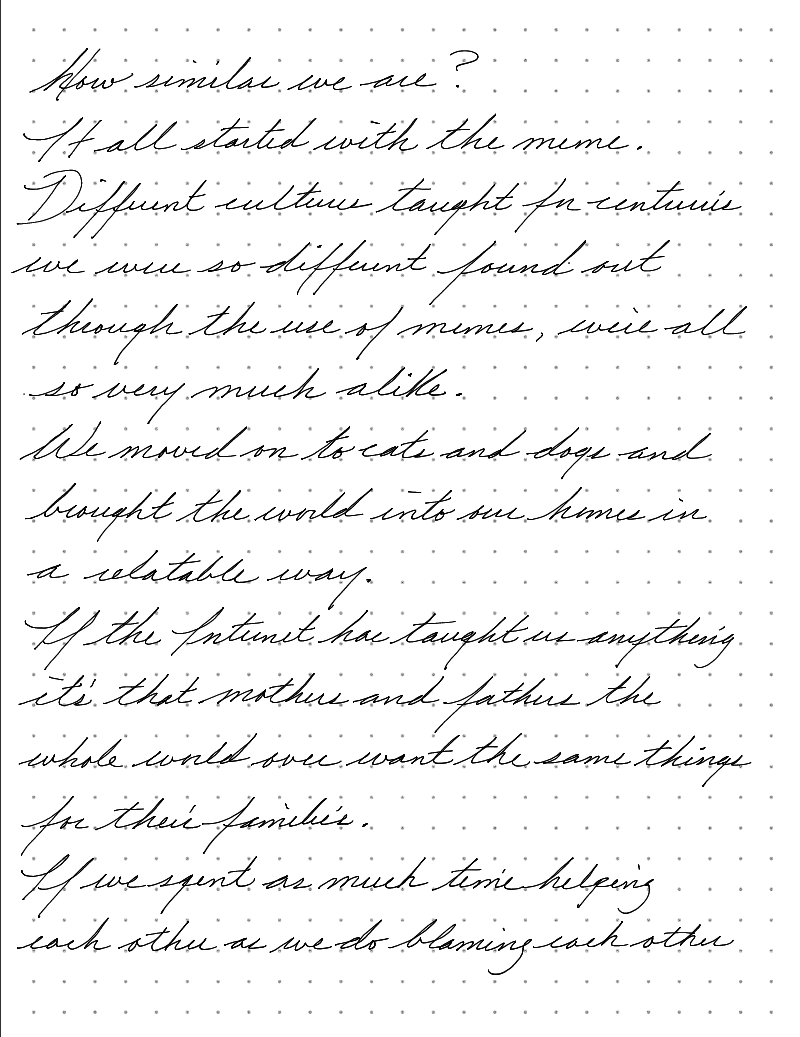 How similar we are?
It all started with the meme.
Different cultures taught for centuries
we were so different found out
through the use of memes, we're all
so very much alike.
We moved on to cats and dogs and
brought the world into our homes in
a relatable way.
If the Internet has taught us anything
it's that mothers and fathers the
whole world over want the same things
for their families.
If we spent as much time helping
each other as we do blaming each other